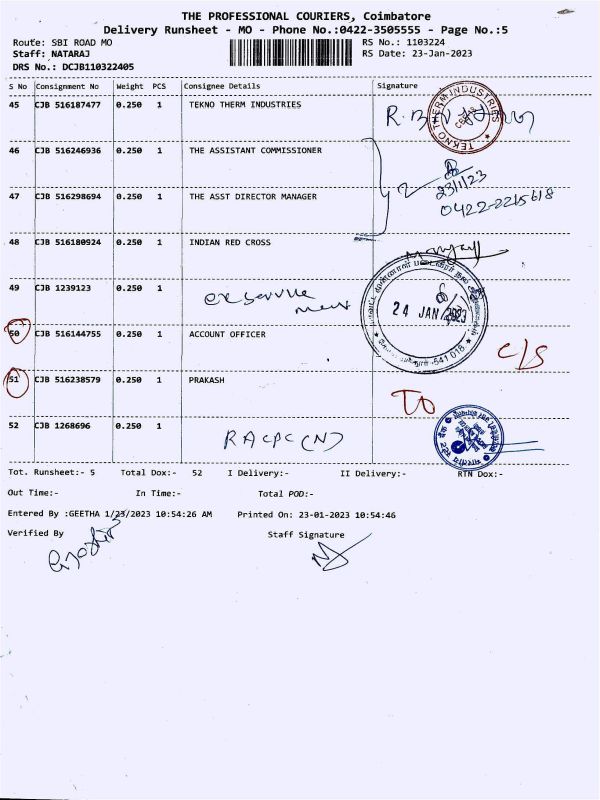 THE PROFESSIONAL COURIERS, Coimbatore
Delivery Runsheet - MO - Phone No.:0422-3505555 - Page No.:5
Route: SBI ROAD MO RS No.: 1103224
Staff: NATARAJ RS Date: 23-Jan-2023
DRS No.: DCJB110322405
S No Consignment No Weight PCS Consignee Details Signature
45 CJB 516187477 0.250 1 TEKNO THERM INDUSTRIES
TEKNO THERM INDUSTRIES
46 CJB 516246936 0.250 1 THE ASSISTANT COMMISSIONER
23/1/23
47 CJB 516298694 0.250 1 THE ASST DIRECTOR MANAGER
0422-2215618
48 CJB 516180924 0.250 1 INDIAN RED CROSS
49 CJB 1239123 0.250 1 ex service men
24 JAN 2023
50 CJB 516144755 0.250 1 ACCOUNT OFFICER
641 018
C/S
51 CJB 516238579 0.250 1 PRAKASH
TO
52 CJB 1268696 0.250 1 RACPC (N)
Tot. Runsheet:- 5 Total Dox:- 52 I Delivery:- II Delivery:- RTN Dox:-
Out Time:- In Time:- Total POD:-
Entered By :GEETHA 1/23/2023 10:54:26 AM Printed On: 23-01-2023 10:54:46
Verified By Staff Signature